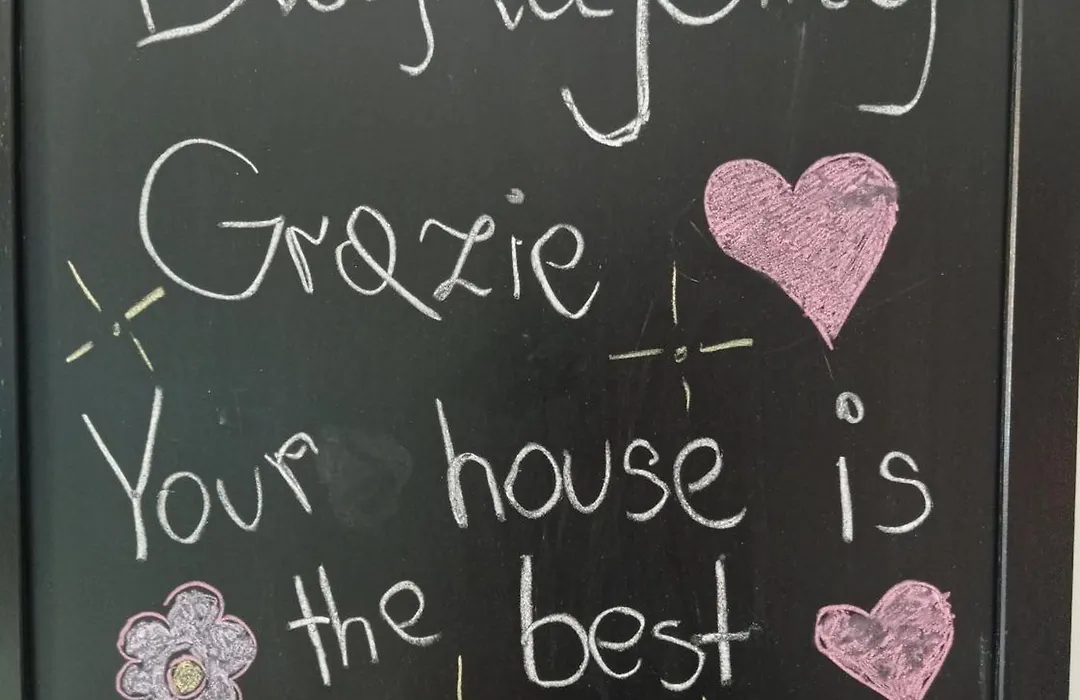 Grazie
Your house is
the best